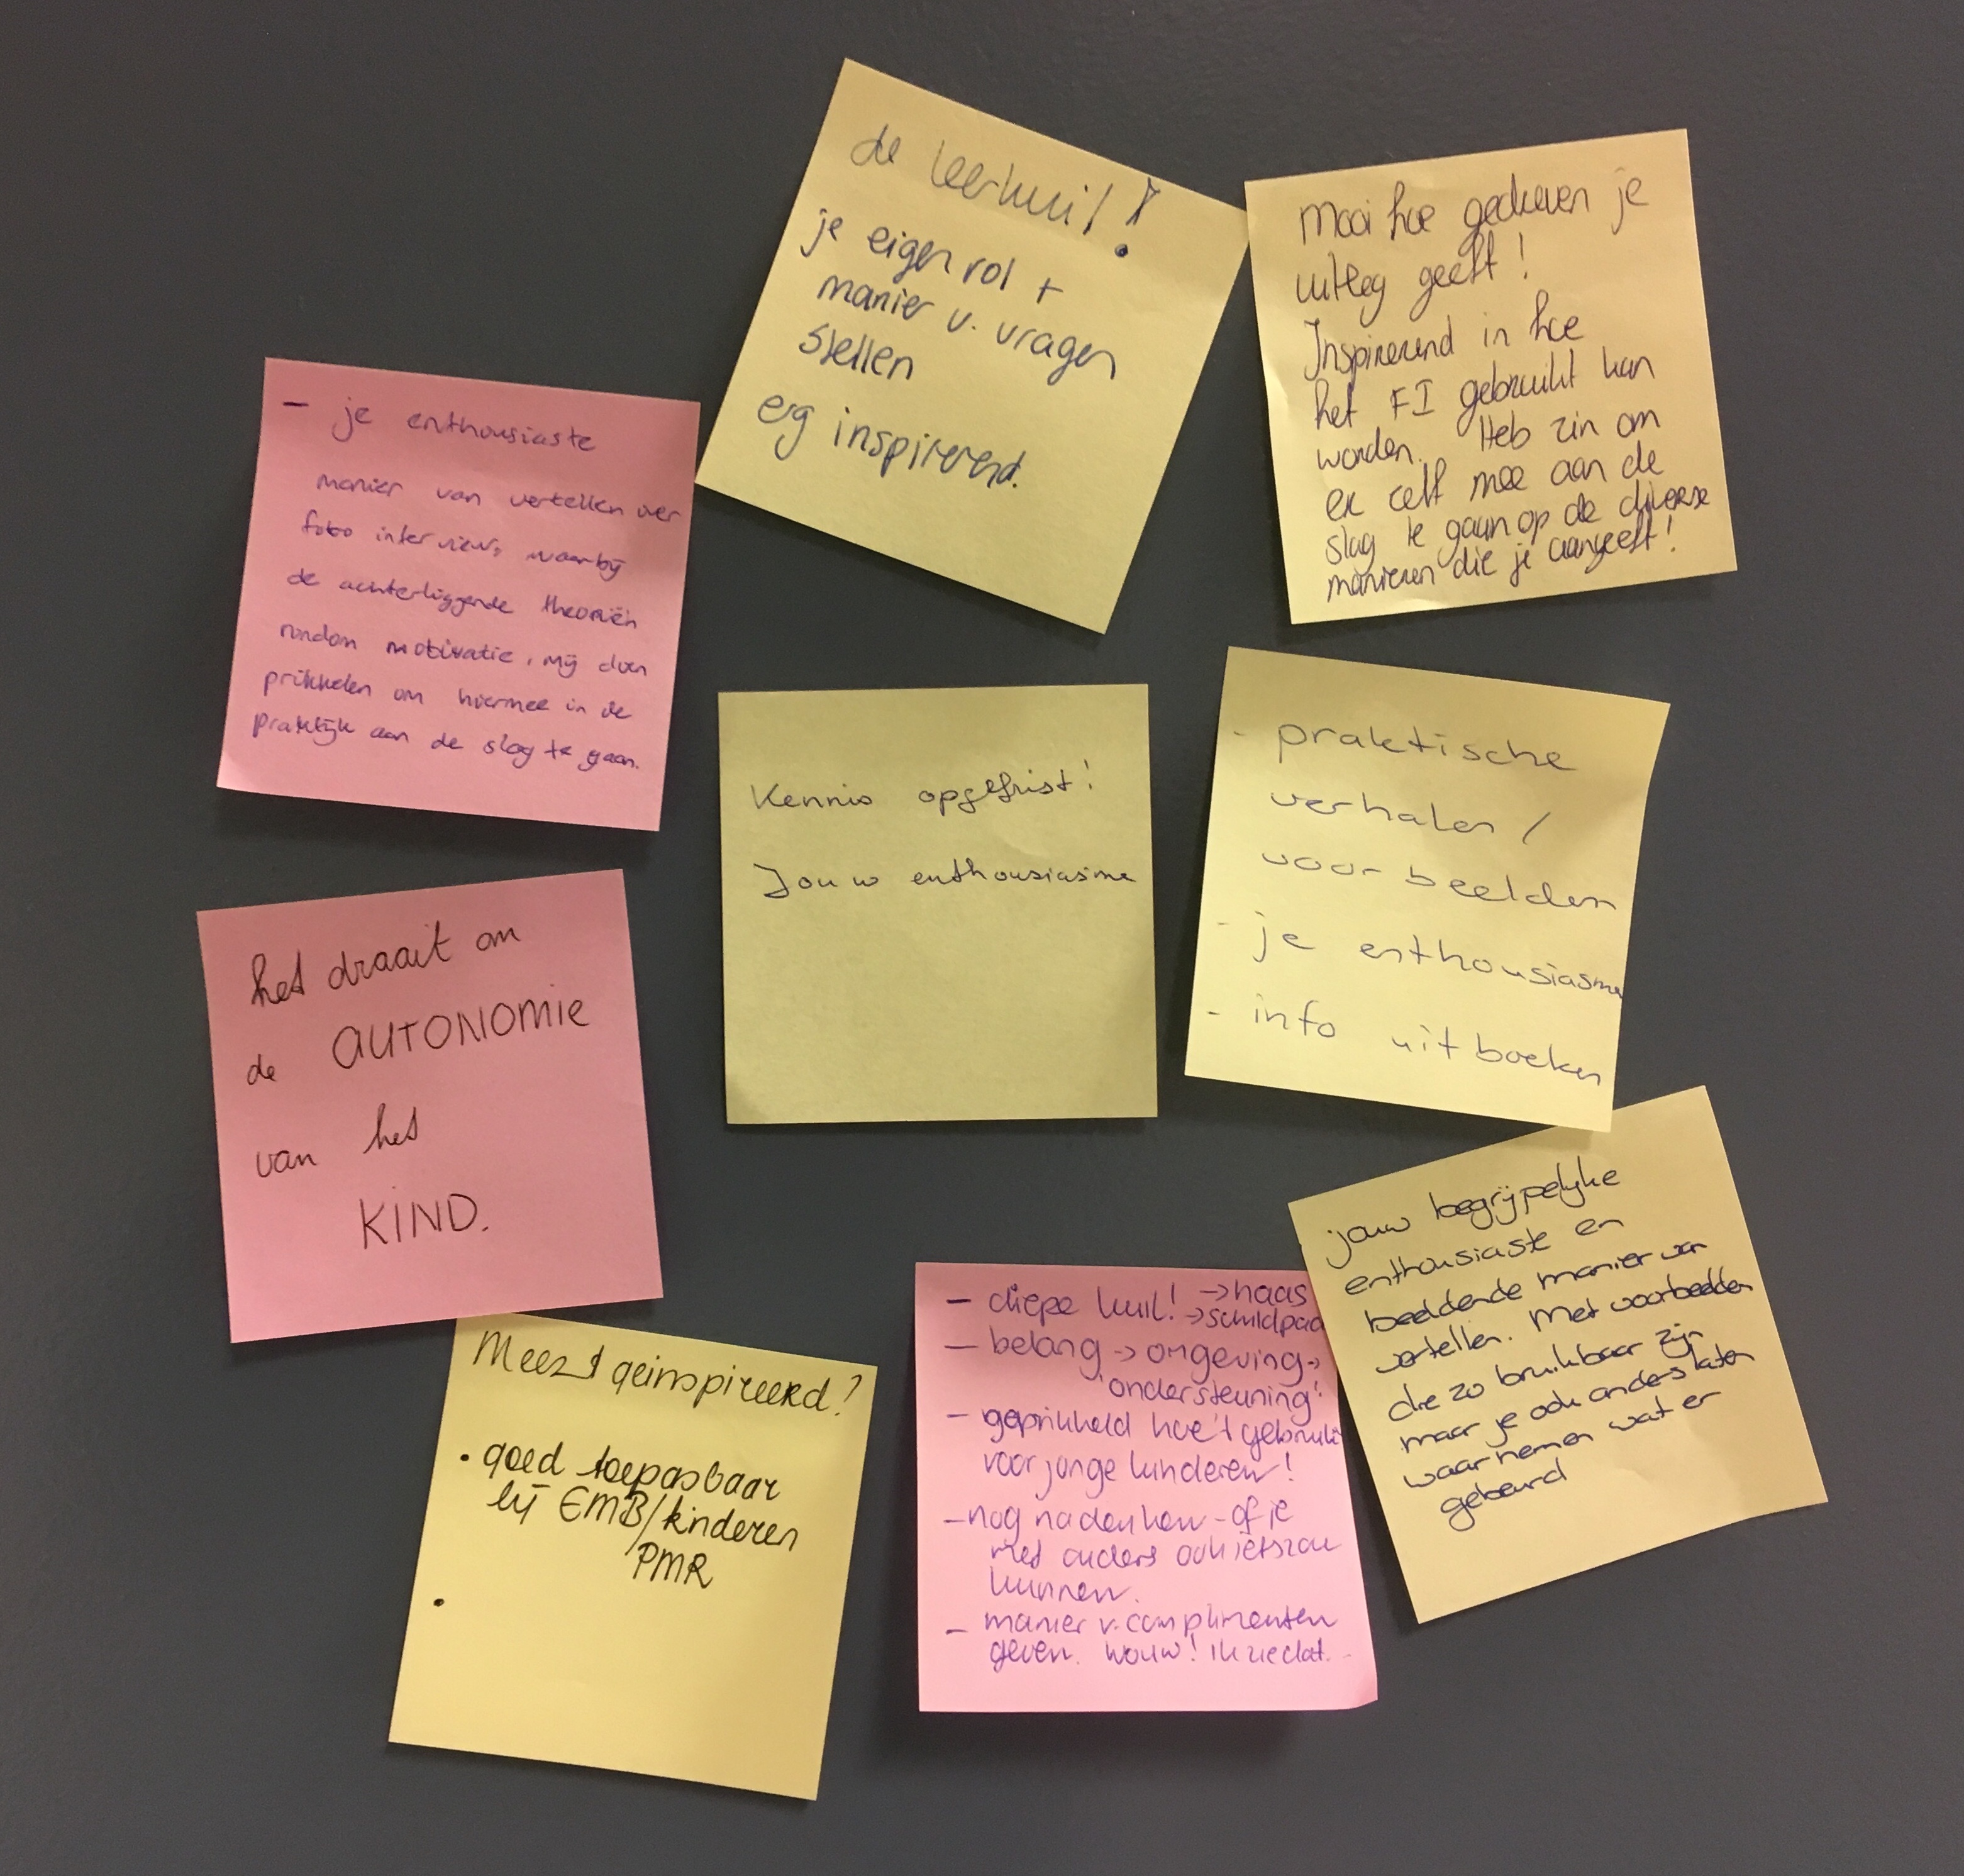 de leerkuil!
je eigen rol +
manier v. vragen
stellen
erg inspirerend.
Mooi hoe gedreven je
uitleg geeft!
Inspirerend in hoe
het FI gebruikt kan
worden. Heb zin om
er zelf mee aan de
slag te gaan op de diverse
manieren die je aangeeft!
- je enthousiaste
manier van vertellen over
foto interview, waarbij
de achterliggende theoriën
rondom motivatie, mij doen
prikkelen om hiermee in de
praktijk aan de slag te gaan.
Kennis opgefrist!
Jouw enthousiasme
- praktische
verhalen /
voorbeelden
- je enthousiasme
- info uit boeken
het draait om
de AUTONOMIE
van het
KIND.
jouw begrijpelijke
enthousiaste en
beeldende manier van
vertellen. Met voorbeelden
die zo bruikbaar zijn
maar je ook anders laten
waarnemen wat er
gebeurd
- diepe kuil! → haas
→ schildpad
- belang → omgeving →
'ondersteuning'!
- geprikkeld hoe 't gebruikt
voor jonge kinderen!
- nog nadenken - of je
met ouders ook iets zou
kunnen.
- manier v. complimenten
geven. wouw! ik zie dat..
Meest geinspireerd?
• goed toepasbaar
bij EMB/kinderen
PMR
•